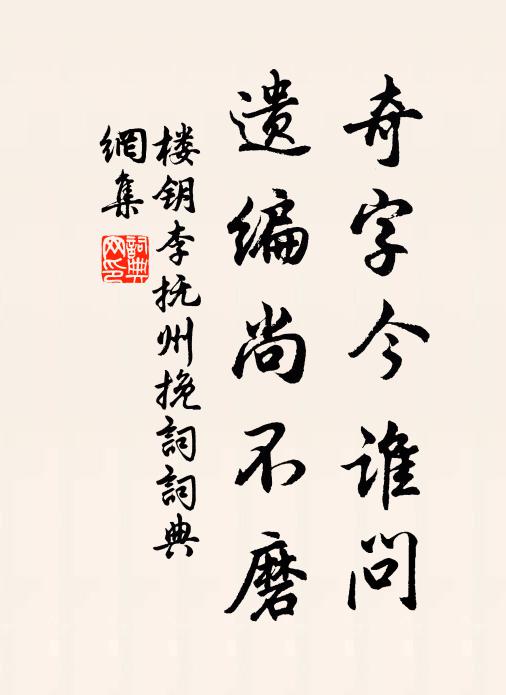 奇字今谁问
遗编尚不磨
楼钥李抚州挽詞詞典
網集
詞典
网印